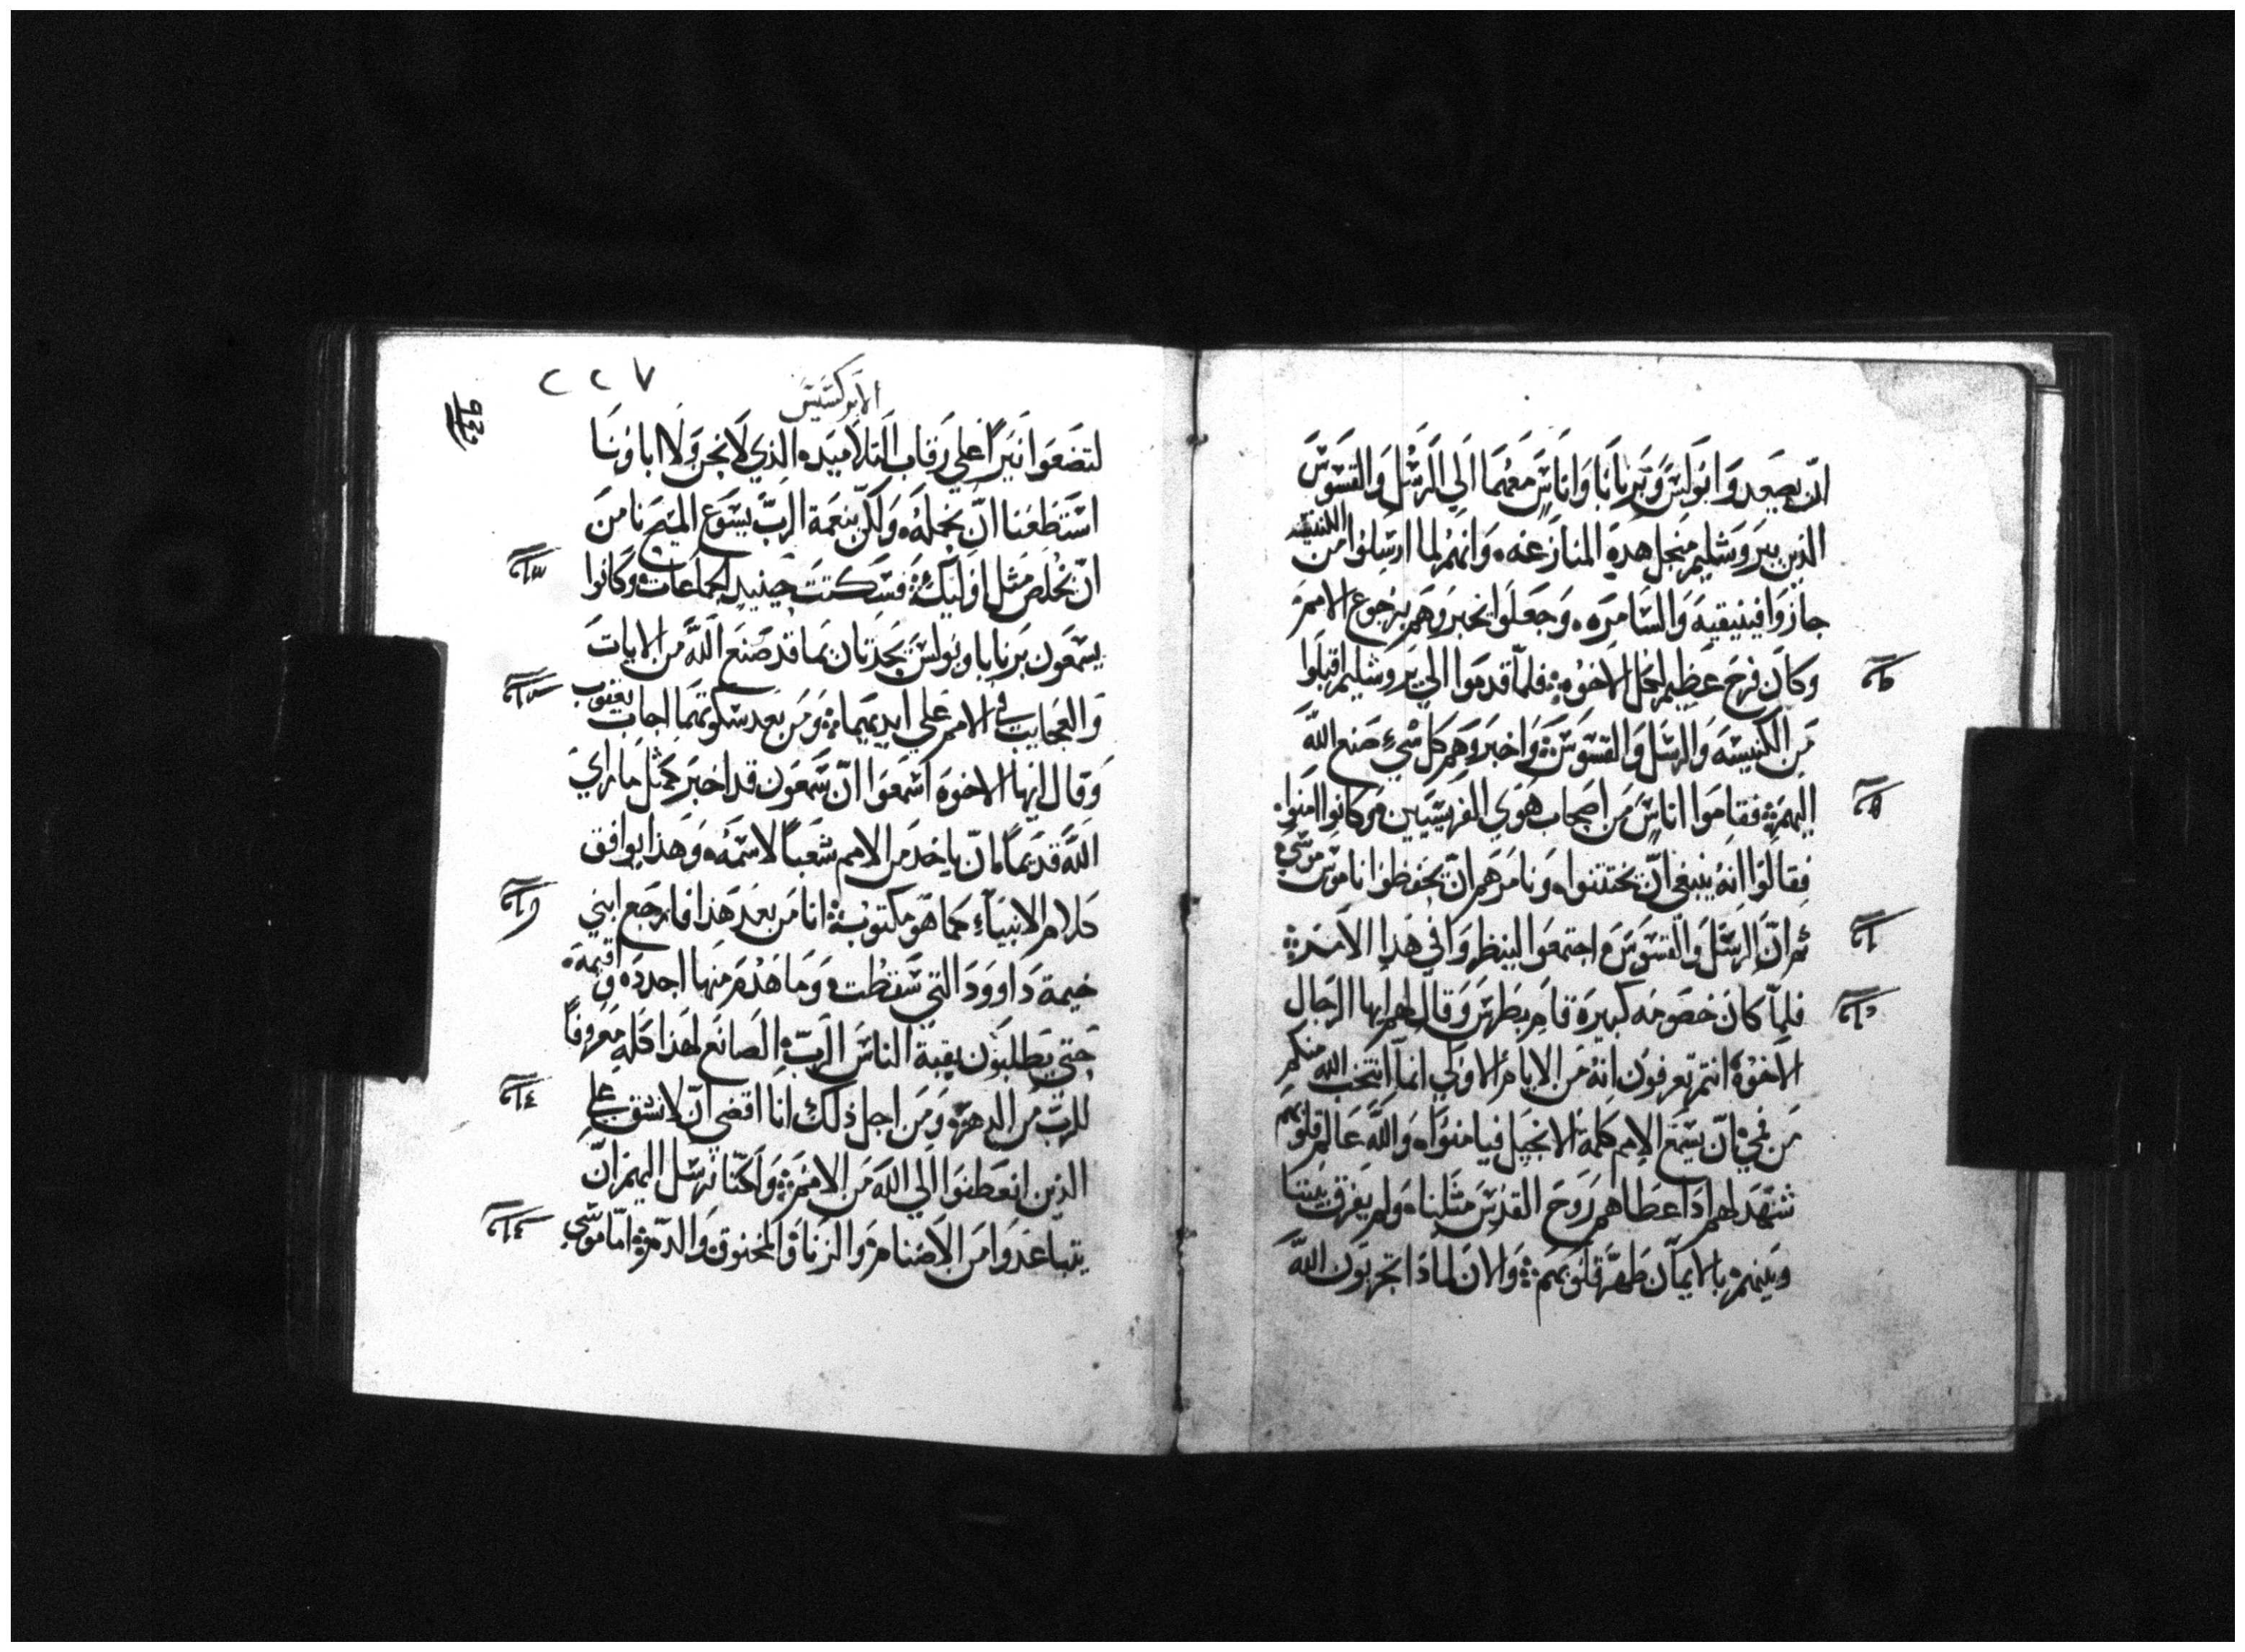 ان يصعدوا بولس وبرنابا واناس معهما الي الرسل والقسوس
الذين بيروشليم منجل هده المنازعنه وانهم لما ارسلوا من الكنيسه
جازوا فينيقيه والسامره وجعلوا يخبروهم برجوع الامم
وكان فرح عظيم لكل الاخوه فلما قدموا الي يروشليم اقبلوا
من الكنيسه والرسل والقسوس واخبروهم كل شيء صنع الله
اليهم فقاموا اناس من اصحاب هوي الفريسيين من كانوا امنوا
فقالوا انه ينبغي ان يختتنوا ونامرهم ان يحفظوا ناموس موسي
ثم ان الرسل والقسوس اجتمعوا لينظروا في هذا الامر
فلما كان خصومه كبيره قام بطرس وقال لهم ايها الرجال
الاخوه انتم تعرفون انه من الايام الاولي انما انتخب الله منكم
من فمي ان يسمع الامم كلمة الانجيل فيامنوا والله عالم قلوبهم
شهد لهم اذ اعطاهم روح القدس مثلنا ولم يفرق بيننا
وبينهم بالايمان طهر قلوبهم والان لماذا تجربون الله
٢٢٧
الابركسيس
لتضعوا نيرا علي رقاب التلاميده الذي لا نحن ولا اباونا
استطعنا ان نحمله ولكن بنعمة الرب يسوع المسيح نامن
ان نخلص مثل اوليك فسكتت حينيد الجماعات وكانوا
يسمعون برنابا وبولس يحدثان بما قد صنع الله من الايات
والعجايب في الامم علي ايديهما ومن بعد سكوتهما اجاب يعقوب
وقال ايها الاخوه اسمعوا ان سمعون قد اخبر كمثل ما راي
الله قديما ان ياخد من الامم شعبا لاسمه وهذا يوافق
كلام الانبياء كما هو مكتوب انا من بعد هذا فارجع ابني
خيمة داوود التي سقطت وما هدم منها اجدده واقيمه
حتي يطلبون بقية الناس الرب الصانع لهذا كله معروفا
للرب من الدهر ومن اجل ذلك انا اقضي ان لا نشق علي
الذين انعطفوا الي الله من الامم ولكنا نرسل اليهم ان
يتباعدوا من الاصنام والزنا والمخنوق والدم اما موسي